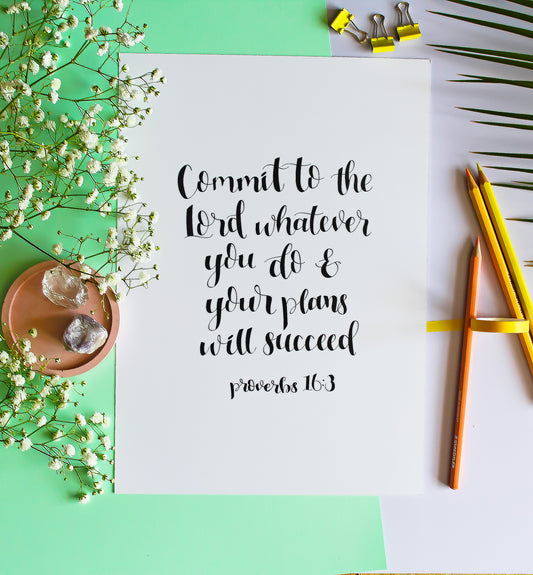 Commit to the
Lord whatever
you do &
your plans
will succeed
proverbs 16:3